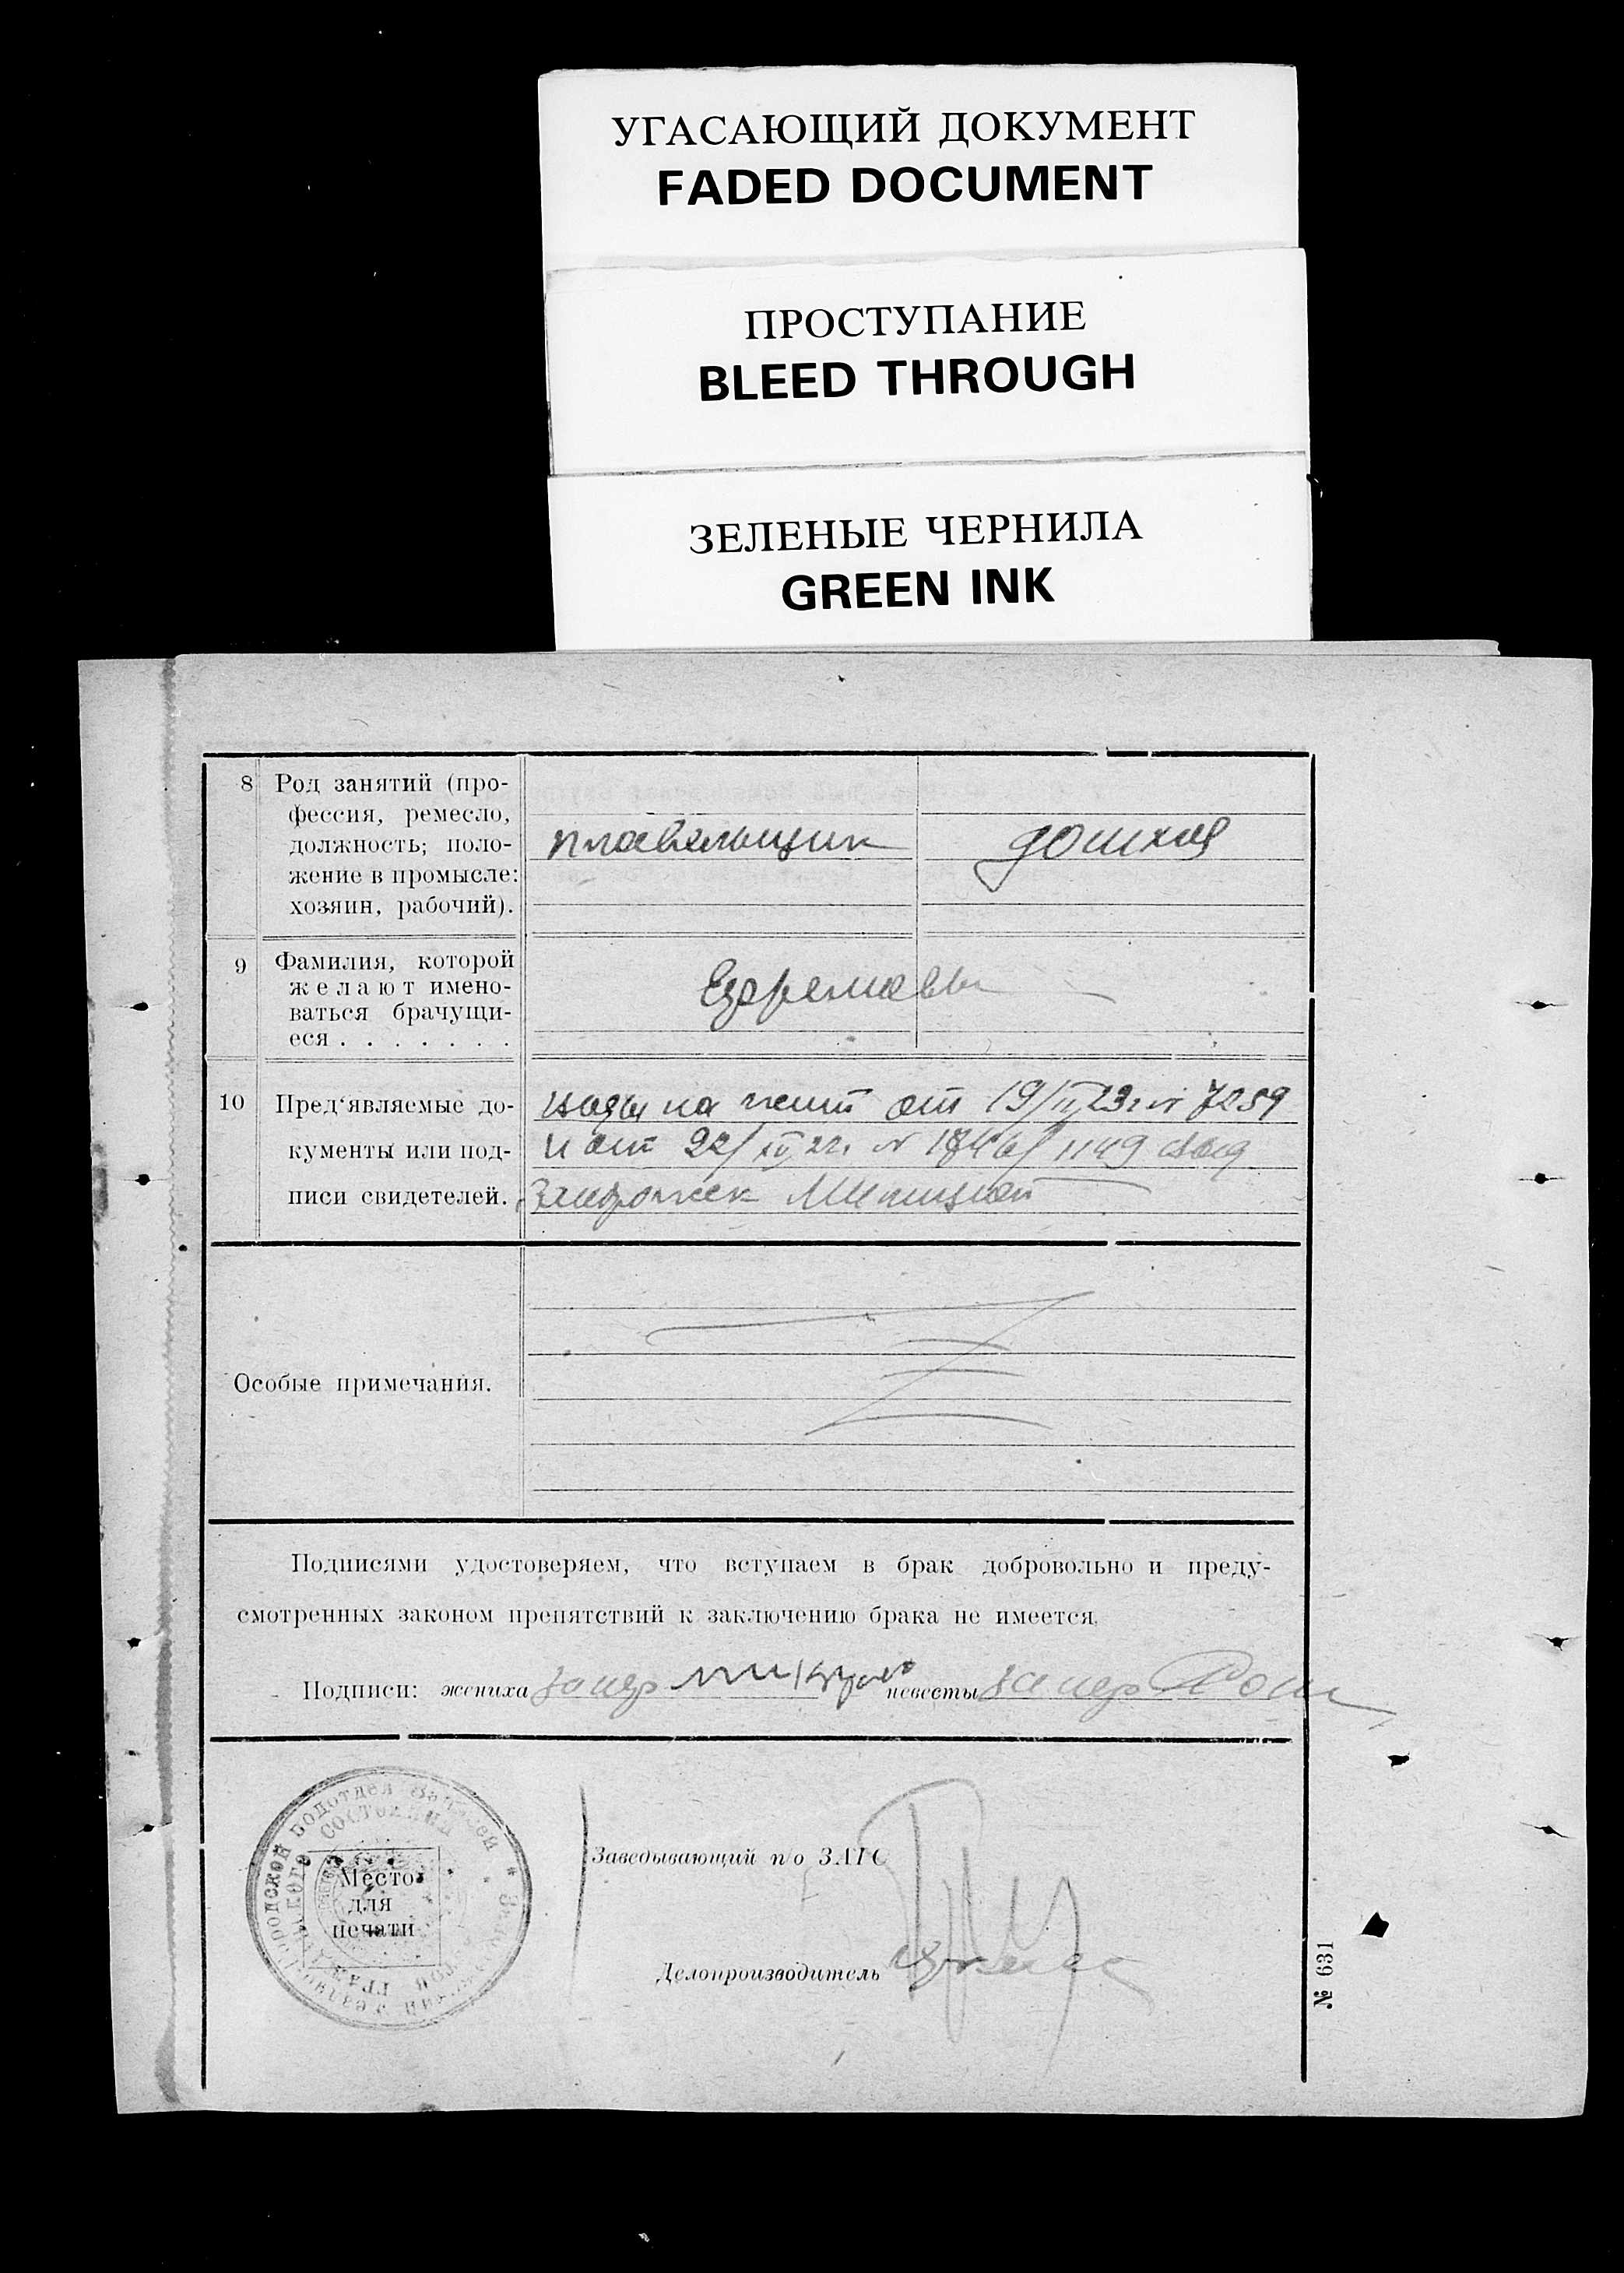 УГАСАЮЩИЙ ДОКУМЕНТ
FADED DOCUMENT
ПРОСТУПАНИЕ
BLEED THROUGH
ЗЕЛЕНЫЕ ЧЕРНИЛА
GREEN INK
8 Род занятий (про-
фессия, ремесло,
должность; поло-
жение в промысле:
хозяин, рабочий).
плавильщик
домхоз
9 Фамилия, которой
желают имено-
ваться брачущи-
еся . . . . . . .
Ефремовы
10 Пред‘являемые до-
кументы или под-
писи свидетелей.
на от 19/ 7259
и от 22/ 1149
Милицией
Особые примечания.
Подписями удостоверяем, что вступаем в брак добровольно и преду-
смотренных законом препятствий к заключению брака не имеется.
Подписи: жениха невесты
Место
для
печати
Заведывающий п/о ЗАГС
Делопроизводитель
№ 631